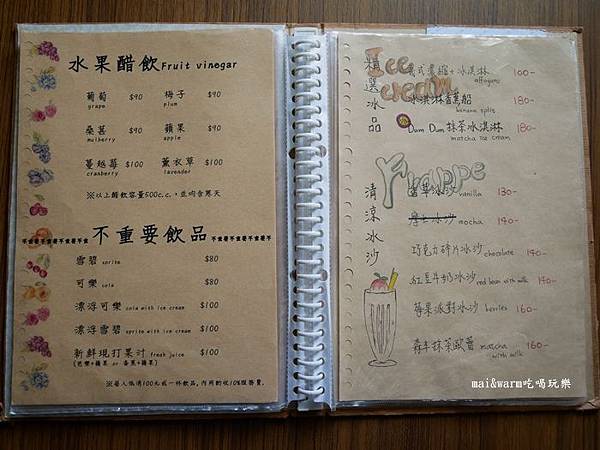 水果醋飲 Fruit vinegar
葡萄 $90 梅子 $90
grape plum
桑葚 $90 蘋果 $90
mulberry apple
蔓越莓 $100 薰衣草 $100
cranberry lavender
※以上醋飲容量500c.c.，並均含寒天
不重要飲品
雪碧 sprite $80
可樂 cola $80
漂浮可樂 cola with ice cream $100
漂浮雪碧 sprite with ice cream $100
新鮮現打果汁 fresh juice $100
(芭樂+蘋果 or 香蕉+蘋果)
※每人低消100元或一杯飲品,內用酌收10%服務費。
Ice cream
精選冰品
義式濃縮+冰淇淋 100-
affogato
冰淇淋香蕉船 180-
banana split
Dum Dum 抹茶冰淇淋 180-
matcha ice cream
Frappe
清涼冰沙
香草冰沙 vanilla 130-
摩卡冰沙 mocha 140-
巧克力碎片冰沙 chocolate 140-
紅豆牛奶冰沙 red bean with milk 140-
莓果派對冰沙 berries 160-
森半抹茶歐蕾 matcha with milk 160-
mai&warm吃喝玩樂